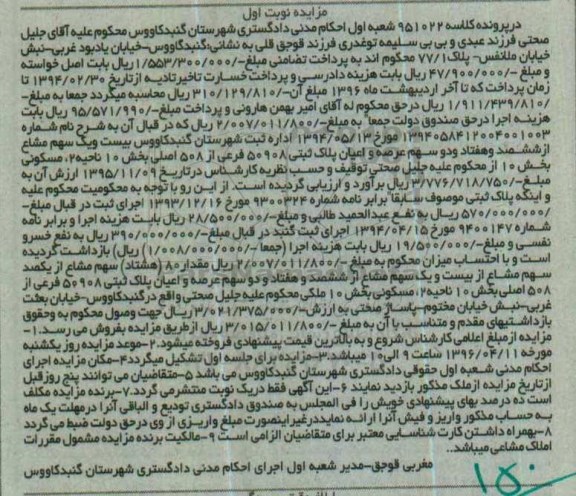 مزایده نوبت اول
در پرونده کلاسه ۹۵۱۰۲۲ شعبه اول احکام مدنی دادگستری شهرستان گنبدکاووس محکوم علیه آقای جلیل
صحتی فرزند عبدی و بی بی سلیمه توغدری فرزند قوجق قلی به نشانی:گنبدگاووس-خیابان یادبود غربی-نبش
خیابان ملانفس- پلاک۷۷/۱ محکوم اند به پرداخت تضامنی مبلغ-/۱/۵۵۳/۳۰۰/۰۰۰ ریال بابت اصل خواسته
و مبلغ -/۴۷/۹۰۰/۰۰۰ ریال بابت هزینه دادرسی و پرداخت خسارت تاخیر تادیه از تاریخ ۱۳۹۴/۰۲/۳۰ تا
زمان پرداخت که تا آخر اردیبهشت ماه ۱۳۹۶ مبلغ آن-/۳۱۰/۱۲۹/۸۱۰ ریال محاسبه میگردد جمعا به مبلغ-
/۱/۹۱۱/۴۳۹/۸۱۰ ریال درحق محکوم له آقای امیر بهمن هارونی و پرداخت مبلغ-/۹۵/۵۷۱/۹۹۰ ریال بابت
هزینه اجرا درحق صندوق دولت جمعا به مبلغ -/۲/۰۰۷/۰۱۱/۸۰۰ ریال که در قبال آن به شرح نام شماره
۱۳۹۴۰۵۸۴۱۲۰۰۴۰۰۱۰۰۳ مورخ ۱۳۹۴/۰۵/۱۳ اداره ثبت شهرستان گنبدکاووس بیست ویک سهم مشاع
از ششصد وهفتاد ودو سهم عرصه و اعیان پلاک ثبتی ۵۰۹۰۸ فرعی از ۵۰۸ اصلی بخش ۱۰ ناحیه۲، مسکونی
بخش ۱۰ از محکوم علیه جلیل صحتی توقیف و حسب نظریه کارشناس درتاریخ ۱۳۹۵/۱۱/۰۹ ارزش آن به
مبلغ-/۳/۷۷۶/۷۱۸/۷۵۰ ریال برآورد و ارزیابی گردیده است. از این رو با توجه به محکومیت محکوم علیه
و اینکه پلاک ثبتی موصوف سابقا برابر نامه شماره ۹۳۰۰۳۲۴ مورخ ۱۳۹۳/۱۲/۱۶ اجرای ثبت در قبال مبلغ-
/۵۷۰/۰۰۰/۰۰۰ ریال به نفع عبدالحمید طالبی و مبلغ-/۲۸/۵۰۰/۰۰۰ ریال بابت هزینه اجرا و برابر نامه
شماره ۹۴۰۰۱۴۷ مورخ ۱۳۹۴/۰۴/۱۵ اجرای ثبت گنبد در قبال مبلغ-/۳۹۰/۰۰۰/۰۰۰ ریال به نفع خسرو
نفسی و مبلغ-/۱۹/۵۰۰/۰۰۰ ریال بابت هزینه اجرا (جمعا -/۱/۰۰۸/۰۰۰/۰۰۰ ریال) بازداشت گردیده
است و با احتساب میزان محکوم به مبلغ-/۲/۰۰۷/۰۱۱/۸۰۰ ریال مقدار۸۰(هشتاد) سهم مشاع از یکصد
سهم مشاع از بیست و یک سهم مشاع از ششصد و هفتاد و دو سهم عرصه و اعیان پلاک ثبتی ۵۰۹۰۸ فرعی از
۵۰۸ اصلی بخش ۱۰ ناحیه۲، مسکونی بخش ۱۰ ملکی محکوم علیه جلیل صحتی واقع در گنبدکاووس-خیابان بعثت
غربی-نبش خیابان مختوم-پاساژ صحتی به ارزش-/۳/۰۲۱/۳۷۵/۰۰۰ ریال جهت وصول محکوم به وحقوق
بازداشتهای مقدم و متناسب با آن به مبلغ -/۳/۰۱۵/۰۱۱/۸۰۰ ریال ازطریق مزایده بفروش می رسد.۱-
مزایده از مبلغ اعلامی کارشناس شروع و به بالاترین قیمت پیشنهادی فروخته میشود.۲-موعد مزایده روز یکشنبه
مورخه ۱۳۹۶/۰۴/۱۱ ساعت ۹ الی۱۰ میباشد.۳-مزایده برای جلسه اول تشکیل میگردد۴-مکان مزایده اجرای
احکام مدنی شعبه اول حقوقی دادگستری شهرستان گنبدکاووس می باشد ۵-متقاضیان می توانند پنج روزقبل
از تاریخ مزایده ازملک مذکور بازدید نمایند ۶-این آگهی فقط دریک نوبت منتشرمی گردد.۷-برنده مزایده مکلف
است ده درصد بهای پیشنهادی خویش را فی المجلس به صندوق دادگستری تودیع و الباقی آنرا درمهلت یک ماه
به حساب مذکور واریز و فیش آنرا ارائه نمایددرغیراینصورت مبلغ واریزی از وی درحق دولت ضبط می گردد
۸-بهمراه داشتن کارت شناسایی معتبر برای متقاضیان الزامی است ۹-مالکیت برنده مزایده مشمول مقررات
املاک مشاعی میباشد..
مغربی قوجق-مدیر شعبه اول اجرای احکام مدنی دادگستری شهرستان گنبدکاووس
۱۵۰